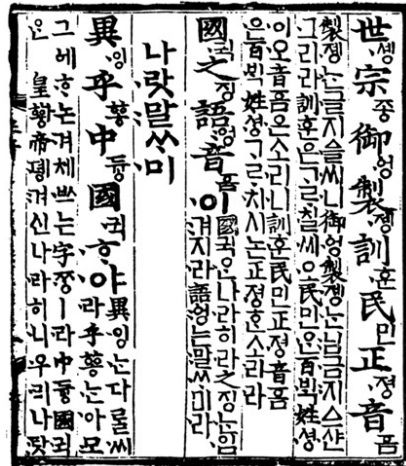 世솅宗종御엉製졩訓훈民민正졍音흠
製졩는글지ᅀᅳᆯ씨니御엉製졩는님금지ᅀᅳ샨
그리라訓훈은ᄀᆞᄅᆞ칠씨오民민ᄋᆞᆫ百ᄇᆡᆨ姓셩
이오音흠은소리니訓훈民민正졍音흠
은百ᄇᆡᆨ姓셩ᄀᆞᄅᆞ치시논正졍ᄒᆞᆫ소리라
國귁之징語엉音흠이
國귁ᄋᆞᆫ나라히라之징ᄂᆞᆫ입
겨지라語엉는말ᄊᆞ미라
나랏말ᄊᆞ미
異잉乎ᅘᅩᆼ中듀ᇰ國귁ᄒᆞ야
異잉ᄂᆞᆫ다ᄅᆞᆯ씨
라乎ᅘᅩᆼᄂᆞᆫ아모
그ᅌᅦᄒᆞ논겨체ᄡᅳ는字ᄍᆞᆼㅣ라中듀ᇰ國귁
ᄋᆞᆫ皇ᅘᅪᆼ帝뎽겨신나라히니우리나랏